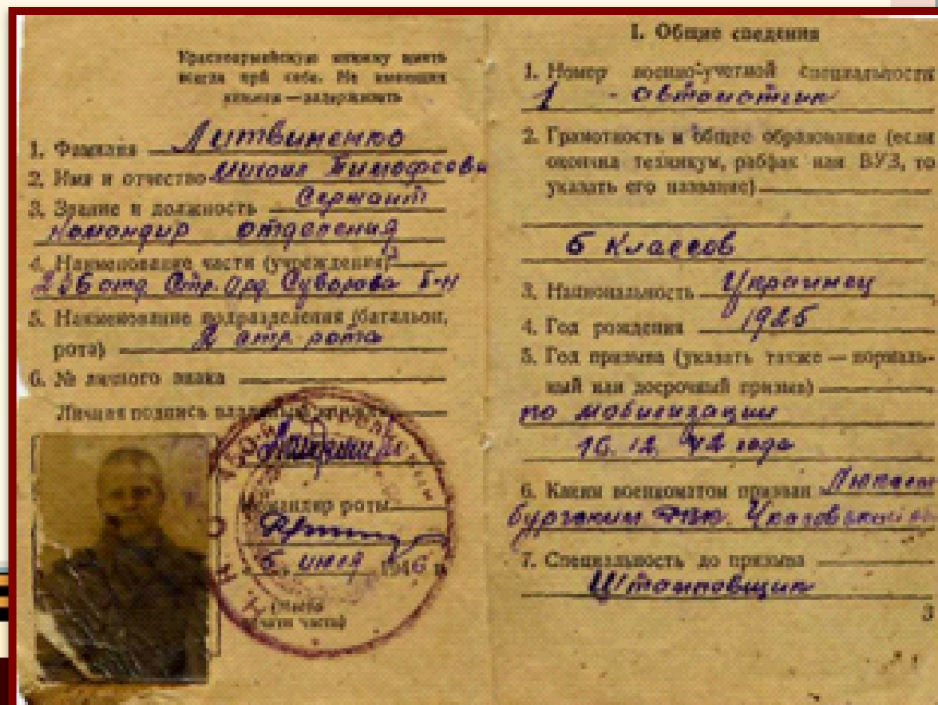 Красноармейскую книжку иметь
всегда при себе. Не имеющих
книжек — задерживать
1. Фамилия Литвиненко
2. Имя и отчество Михаил Тимофеевич
3. Звание и должность Сержант
Командир отделения
4. Наименование части (учреждения)
256 отд. Стр. орд. Суворова Б-н
5. Наименование подразделения (батальон,
рота) 2 стр. рота
6. № личного знака
Личная подпись владельца книжки
Командир роты
5 июля 1946 г.
I. Общие сведения
1. Номер военно-учетной специальности
1 - автоматчик
2. Грамотность и общее образование (если
окончил техникум, рабфак или ВУЗ, то
указать его название)
6 классов
3. Национальность Украинец
4. Год рождения 1925
5. Год призыва (указать также — нормаль-
ный или досрочный призыв)
по мобилизации
16. 12. 42 года
6. Каким военкоматом призван
7. Специальность до призыва
Штамповщик
3